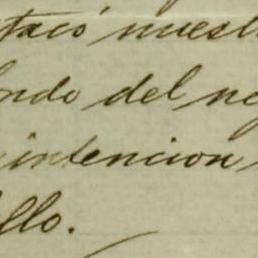 tacó nuest
ondo del ne
intencion
llo.